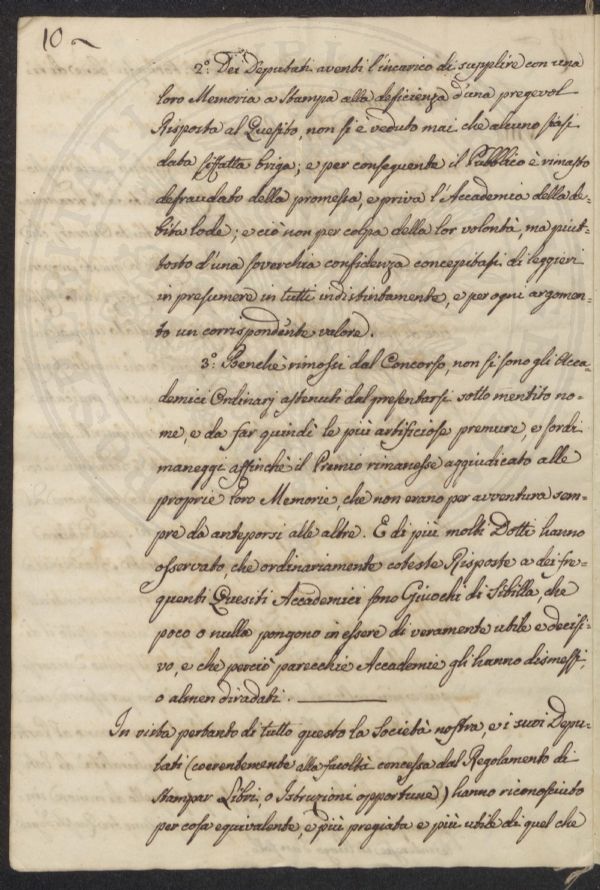 10
2.° Dei Deputati aventi l'incarico di supplire con una
loro Memoria a Stampa alla deficienza d'una pregevol
Risposta al Quesito, non si è veduto mai che alcuno siasi
data siffatta briga; e per conseguente il Pubblico è rimasto
defraudato della promessa, e priva l'Accademia della de=
bita lode; e ciò non per colpa della lor volontà, ma piut=
tosto d'una soverchia confidenza concepitasi di leggieri
in presumere in tutti indistintamente, e per ogni argomen=
to un corrispondente valore.
3.° Benchè rimossi dal Concorso, non si sono gli Acca=
demici Ordinarj astenuti dal presentarsi sotto mentito no=
me, e da far quindi le più artificiose premure, e sordi
maneggi affinchè il Premio rimanesse aggiudicato alle
proprie loro Memorie, che non erano per avventura sem=
pre da anteporsi alle altre. E di più molti Dotti hanno
osservato, che ordinariamente coteste Risposte a dei fre=
quenti Quesiti Accademici sono Giuochi di Sibilla, che
poco o nulla pongono in essere di veramente utile e decisi=
vo, e che perciò parecchie Accademie gli hanno dismessi,
o almen diradati.
In vista pertanto di tutto questo la Società nostra, e i suoi Depu=
tati (coerentemente alla facoltà concessa dal Regolamento di
stampar Libri, o Istruzioni opportune) hanno riconosciuto
per cosa equivalente, e più pregiata e più utile di quel che